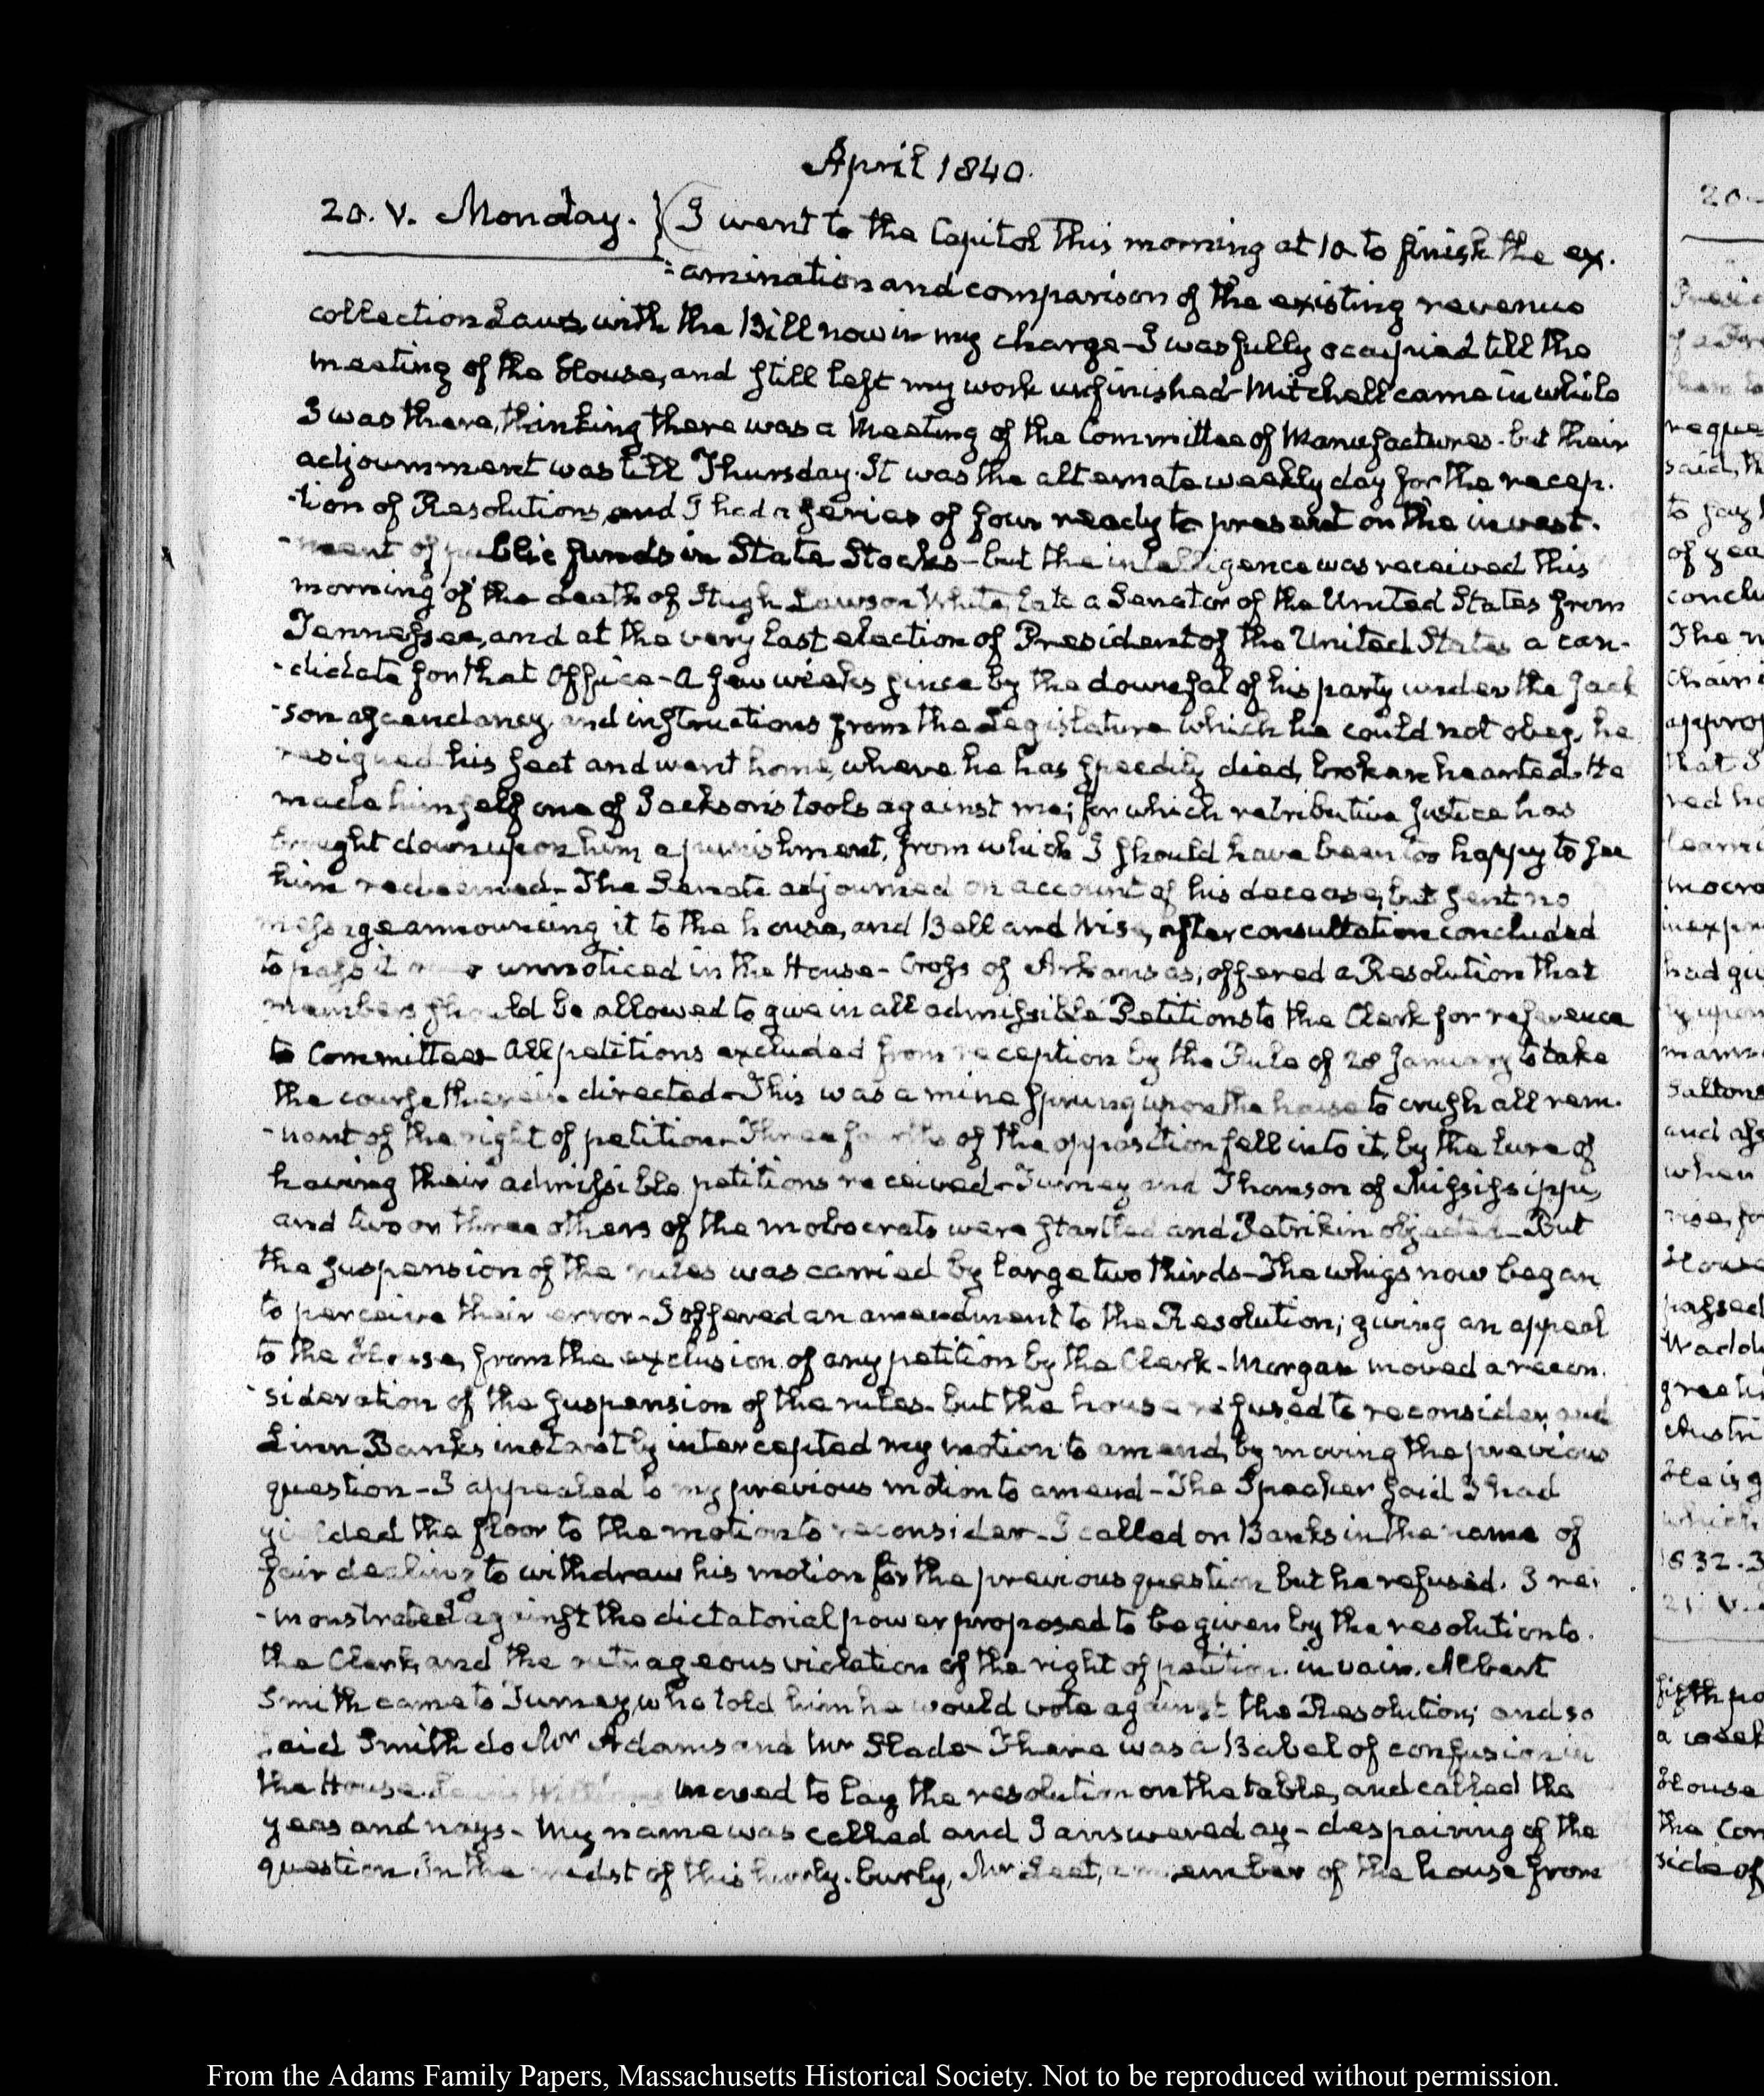 April 1840.
20. V. Monday. } I went to the Capitol this morning at 10 to finish the ex-
-amination and comparison of the existing revenue
collection Laws, with the Bill now in my charge - I was fully occupied till the
meeting of the House, and still left my work unfinished - Mitchell came in while
I was there, thinking there was a Meeting of the Committee of Manufactures - but their
adjournment was till Thursday. It was the alternate weekly day for the recep-
-tion of Resolutions, and I had a series of four ready to present on the invest-
-ment of public funds in State Stocks - but the intelligence was received this
morning of the death of Hugh Lawson White, late a Senator of the United States from
Tennessee, and at the very last election of President of the United States a can-
-didate for that Office - A few weeks since by the downfal of his party under the Jack
-son ascendancy, and instructions from the Legislature which he could not obey, he
resigned his seat and went home, where he has speedily died, broken hearted. He
made himself one of Jackson's tools against me; for which retributive justice has
brought down upon him a punishment, from which I should have been too happy to see
him redeemed - The Senate adjourned on account of his decease, but sent no
message announcing it to the house, and Bell and Wise, after consultation concluded
to pass it over unnoticed in the House - Cross of Arkansas, offered a Resolution that
members should be allowed to give in all admissible Petitions to the Clerk for reference
to Committees - All petitions excluded from reception by the Rule of 28 January to take
the course therein directed - This was a mine sprung upon the house to crush all rem-
-nant of the right of petition - Three fourths of the opposition fell into it, by the lure of
having their admissible petitions received - Turney and Thomson of Mississippi,
and two or three others of the mobocrats were startled and Petrikin objected - But
the suspension of the rules was carried by large two thirds - The whigs now began
to perceive their error - I offered an amendment to the Resolution; giving an appeal
to the House, from the exclusion of any petition by the Clerk - Morgan moved a recon-
-sideration of the suspension of the rules - but the house refused to reconsider, and
Linn Banks instantly intercepted my motion to amend, by moving the previous
question - I appealed to my previous motion to amend - The Speaker said I had
yielded the floor to the motion to reconsider - I called on Banks in the name of
fair dealing to withdraw his motion for the previous question but he refused. I re-
-monstrated against the dictatorial power proposed to be given by the resolution to
the Clerk, and the outrageous violation of the right of petition. in vain. Albert
Smith came to Turney, who told him he would vote against the Resolution; and so
said Smith do Mr Adams and Mr Slade - There was a Babel of confusion in
the House. Lewis Williams moved to lay the resolution on the table, and called the
yeas and nays - My name was called and I answered ay - despairing of the
question. In the midst of this hurly-burly, Mr Leet, a member of the house from
From the Adams Family Papers, Massachusetts Historical Society. Not to be reproduced without permission.